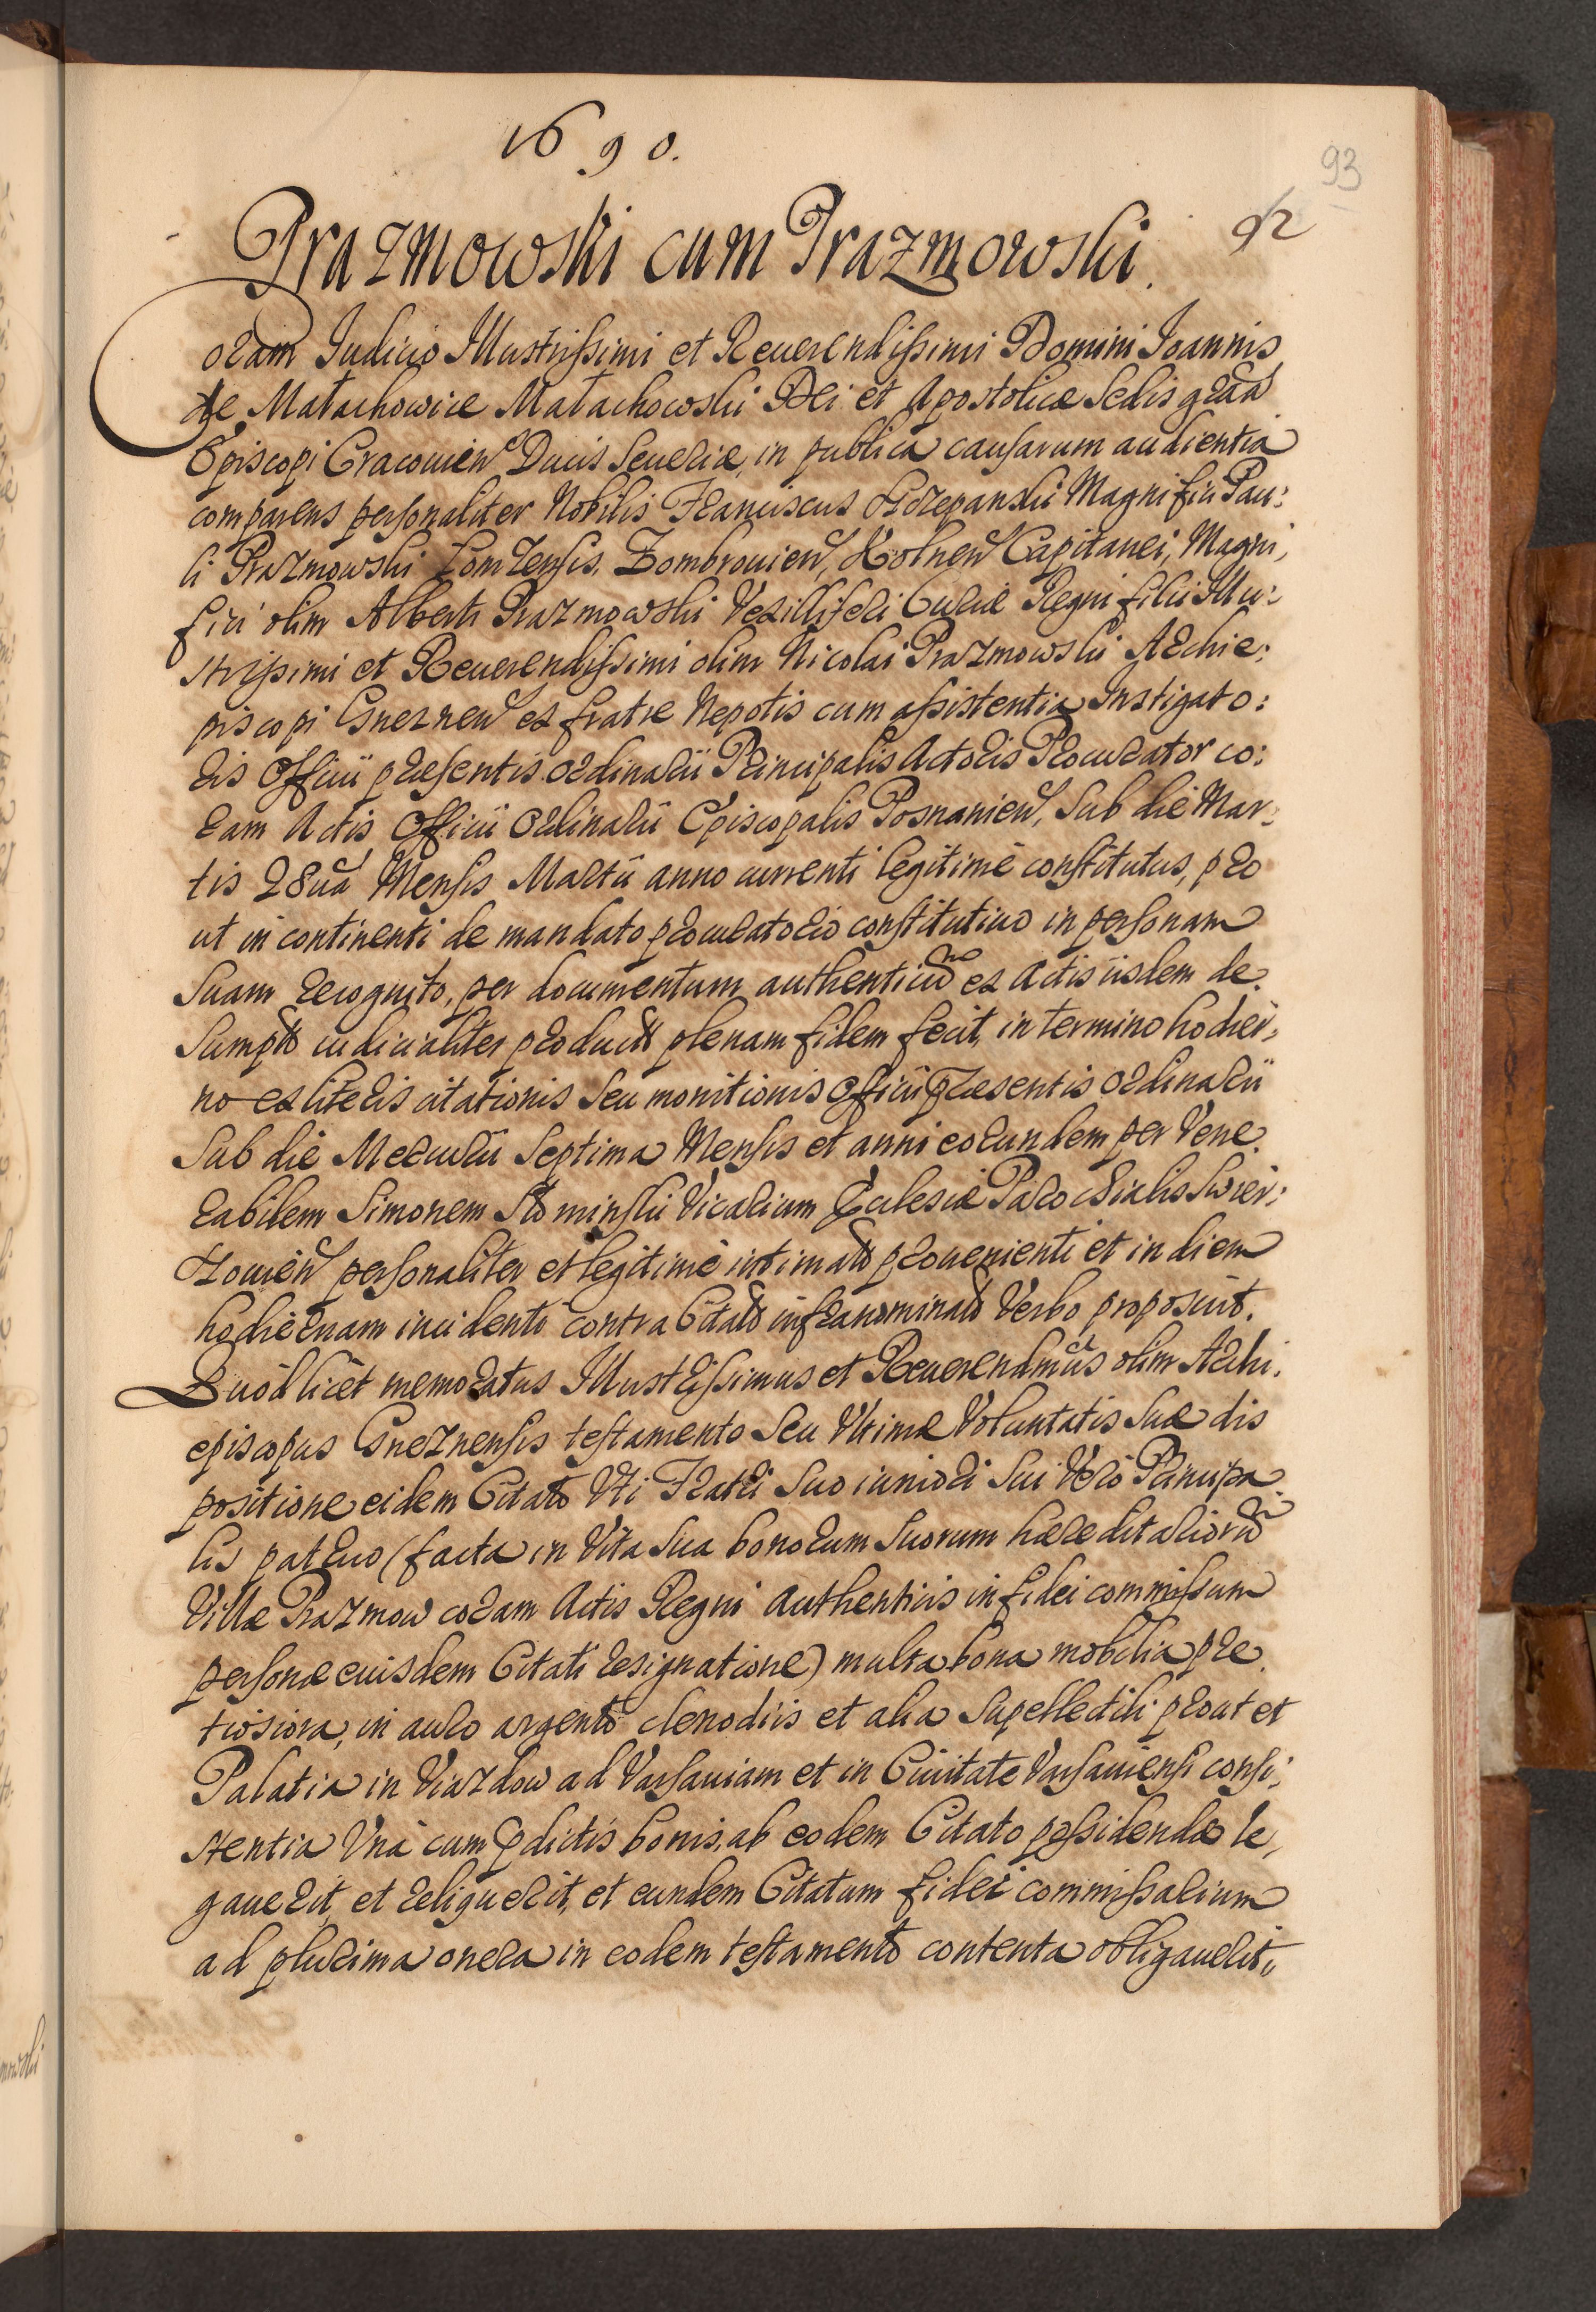 1690.
93
92
Prazmowski cum Prazmowski.
Coram Judicio Illustrissimi et Reuerendissimi Domini Joannis
de Małachowice Małachowski Dei et Apostolicæ Sedis gr̃a
Episcopi Cracouien̄ Ducis Seueriæ, in publica causarum audientia
comparens personaliter Nobilis Franciscus Szczepanski Magnifici Pau:
li Prazmowski Łomzensis, Zombrouien̄, Kolnen̄ Capitanei, Magni,
fici olim Alberti Prazmowski Vexilliferi Curiæ Regni filii Illu:
strissimi et Reuerendissimi olim Nicolai Prazmowski Archie:
piscopi Gneznen̄ ex fratre Nepotis cum assistentia Instigato:
ris Officii præsentis Ordinarii Principalis Actoris Procurator co:
ram Actis Officii Ordinarii Episcopalis Posnanien̄, Sub die Mar:
tis 28ua Mensis Martii anno currenti legitimè constitutus, pro
ut in continenti de mandato procuratorio constitutiuo in personam
Suam recognito, per documentum authenticũ ex Actis iisdem de.
Sumpto iudicialiter producto plenam fidem fecit, in termino hodier,
no ex literis citationis Seu monitionis Officii Præsentis Ordinarii
Sub die Mercurii Septima Mensis et anni eorundem per Vene.
rabilem Simonem Słominski Vicarium Ecclesiæ Parochialis Swier:
zouien̄ personaliter et legitimè intimato proueniente et in diem
hodiernam incidenti contra Citatũ infranominatũ Verbo proposuit.
Quòd licèt memoratus Illustrissimus et Reuerendmũs olim Archi.
episcopus Gneznensis testamento Seu Vltimæ Voluntatis Suæ dis
positione eidem Citato Vti Fratri Suo iuniori Sui Verò Principa.
lis patruo (facta in Vita Sua bonorum Suorum hæreditariorũ
Villæ Prazmow coram Actis Regni Authenticis in fidei commissum
personæ euisdem Citati resignatione) multa bona mobilia pre.
tiosiora, in auro argento clenodiis et alia Supellectili prout et
Palatia in Viazdow ad Varsauiam et in Ciuitate Varsauiensi consi,
stentia Vnà cum p̃dictis bonis, ab eodem Citato possidenda le,
gauerit, et reliquerit, et eundem Citatum fidei commissarium
ad plurima onera in eodem testamento contenta obligauerit,,